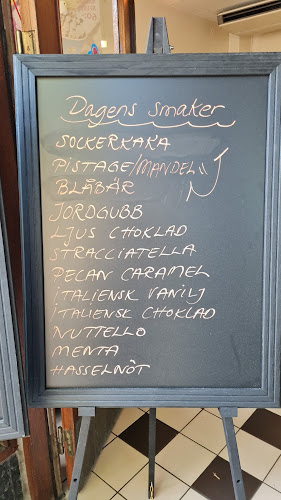 Dagens smaker
SOCKERKAKA
PISTAGE/MANDEL
BLÅBÄR
JORDGUBB
LJUS CHOKLAD
STRACCIATELLA
PECAN CARAMEL
ITALIENSK VANILJ
ITALIENSK CHOKLAD
NUTTELLO
MENTA
HASSELNÖT